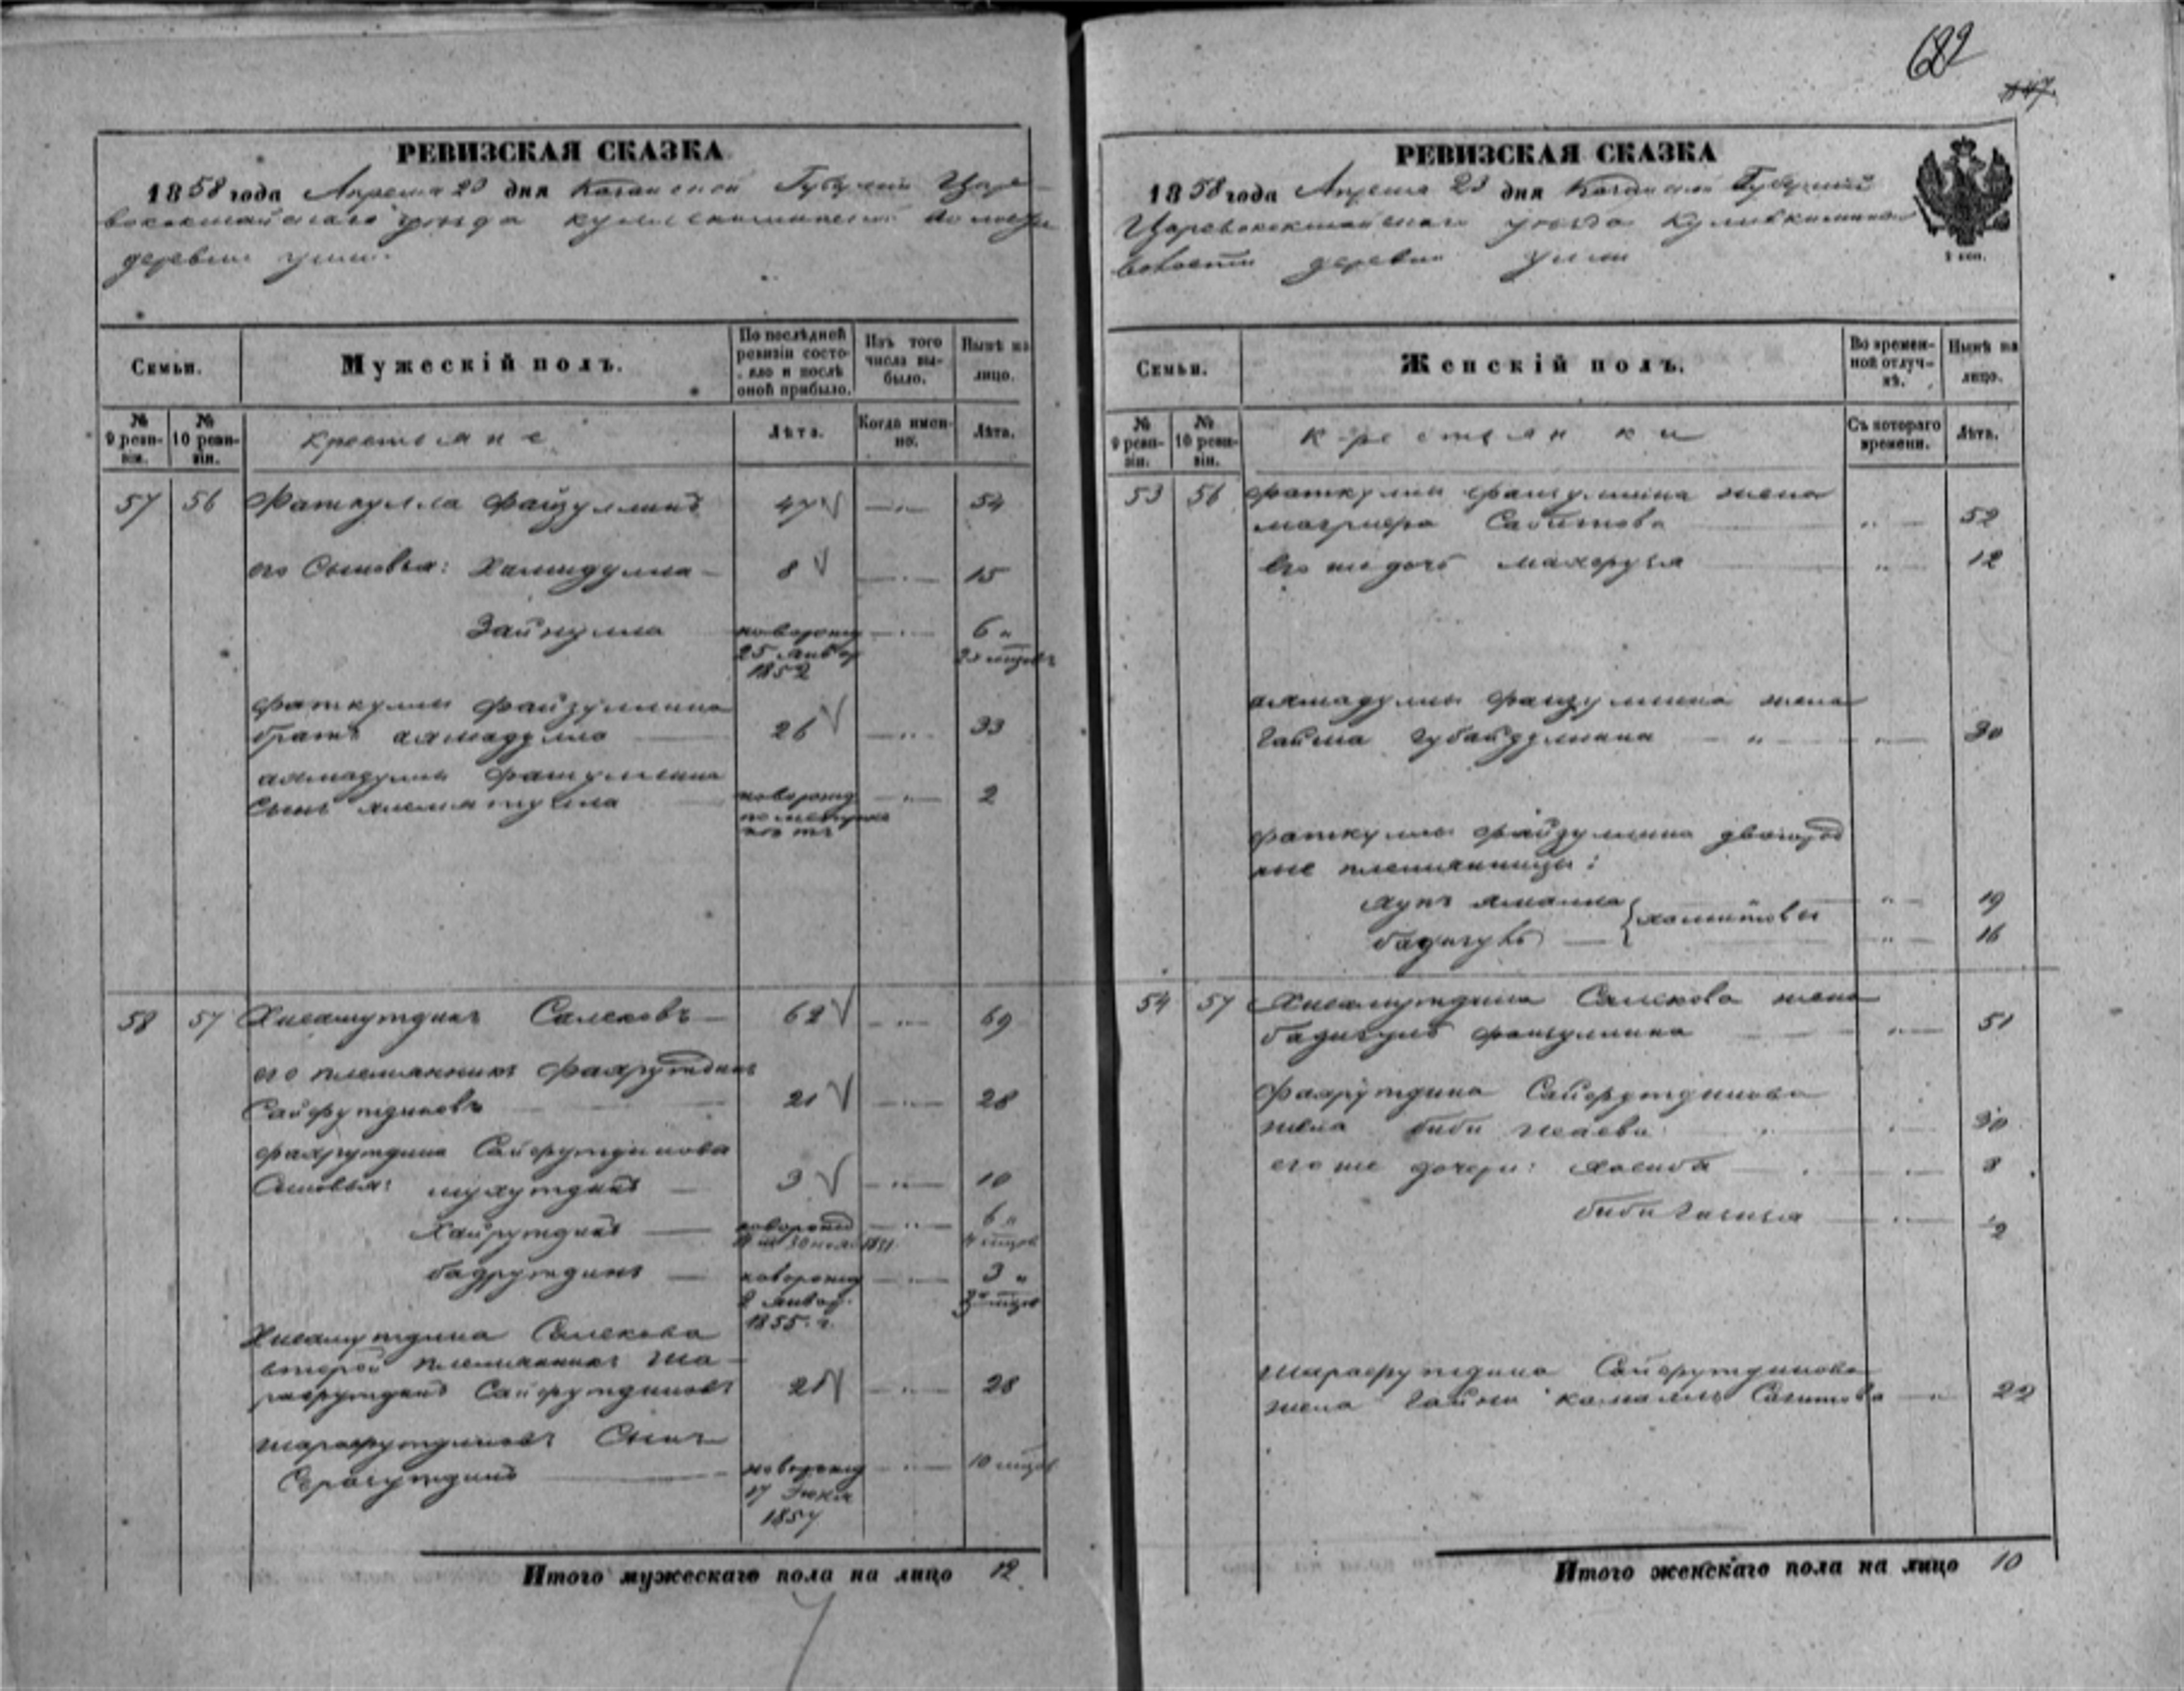 682
147
РЕВИЗСКАЯ СКАЗКА
1858 года Апреля 23 дня Казанской Губернии Царе-
вококшайскаго уезда Кулле Киминской волости
деревни Ушни.
Семьи.
Мужескій полъ.
По послѣдней ревизіи состояло и послѣ оной прибыло.
Изъ того числа выбыло.
Нынѣ на лицо.
№ 9 ревизіи.
№ 10 ревизіи.
Крестьяне
Лѣта.
Когда именно.
Лѣта.
57 56 Фаткулла Файзуллинъ 47 54
его Сыновья: Хамидулла 8 15
Зайнулла новорожд 6 „
25 Январ 23 мцовъ
1852
Фаткуллы Файзуллина
братъ Ахмадулла 26 33
Ахмадуллы Файзуллина
Сынъ новорожд 2
58 57 Хисамутдинъ Салеховъ 62 69
его племянникъ Фахрутдинъ
Сайфутдиновъ 21 28
Фахрутдина Сайфутдинова
Сыновья: Мухутдинъ 3 10
Хайрутдинъ новорожд 6 „
1851
Бадрутдинъ новорожд 3 „
2 Январ. 3 мцов
1855. г.
Хисамутдина Салехова
второй племянникъ Ша-
рафутдинъ Сайфутдиновъ 21 28
Шарафутдиновъ Сынъ
Серазутдинъ новорожд 10 мцов
17 Июня
1857
Итого мужескаго пола на лицо 12.
РЕВИЗСКАЯ СКАЗКА
1858 года Апреля 23 дня Казанской Губерніи
Царевококшайскаго уезда Кулле Киминской
волости деревни Ушни
Семьи.
Женскій полъ.
Во временной отлучкѣ.
Нынѣ на лицо.
№ 9 ревизіи.
№ 10 ревизіи.
Крестьянки
Съ котораго времени.
Лѣта.
53 56 Фаткуллы Файзуллина жена
Сабитова 52
Его же дочь Махеруза 12
Ахмадуллы Файзуллина жена
Гайша Губайдуллина 30
Фаткуллы Файзуллина двоюрод
ные племянницы:
Хамитовы 19
16
54 57 Хисамутдина Салехова жена
Бадигулъ Файзуллина 51
Фахрутдина Сайфутдинова
жена Биби 30
его же дочери: Хасиба 8
Биби 1/2
Шарафутдина Сайфутдинова
жена Гайни Камалъ Сагитова 22
Итого женскаго пола на лицо 10